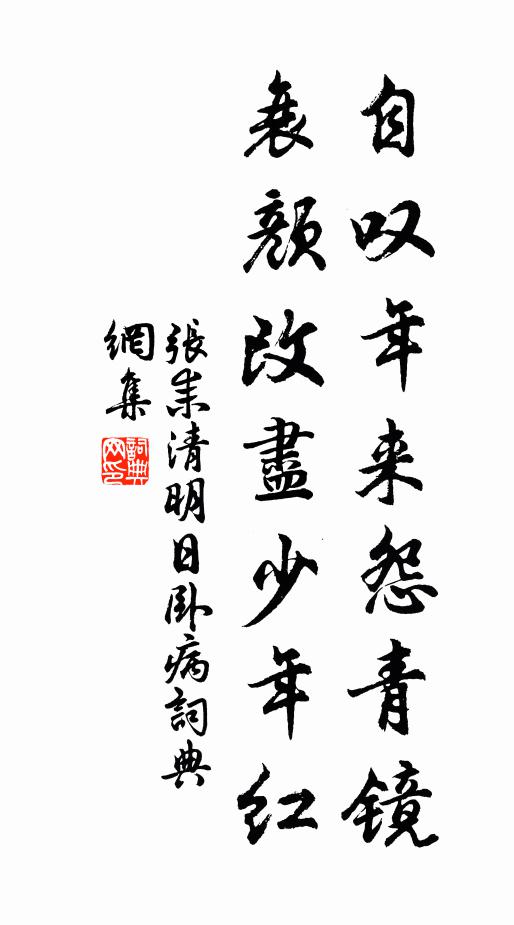 自叹年来怨青镜
衰颜改盡少年红
張耒清明日卧病詞典
網集
詞典网印